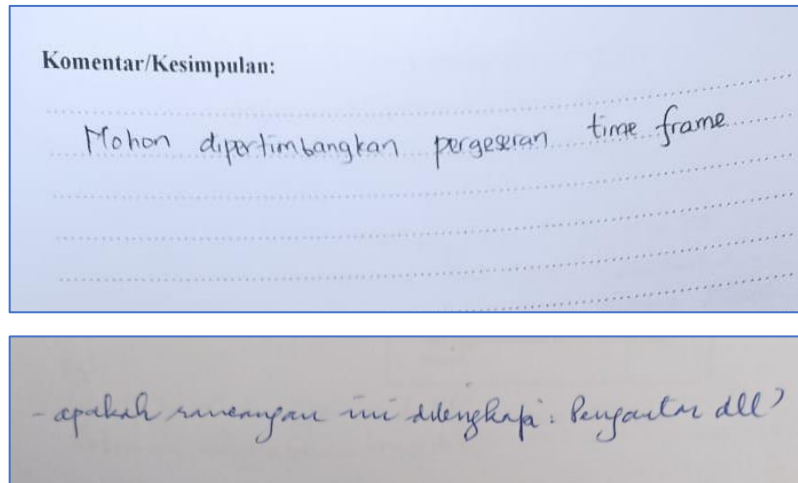 Komentar/Kesimpulan:
Mohon dipertimbangkan pergeseran time frame
- apakah rancangan ini dilengkapi: Pengantar dll?